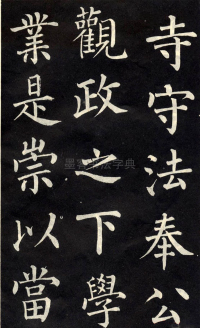 寺守法奉公
觀政之下學
業是崇以當
墨客书法字典